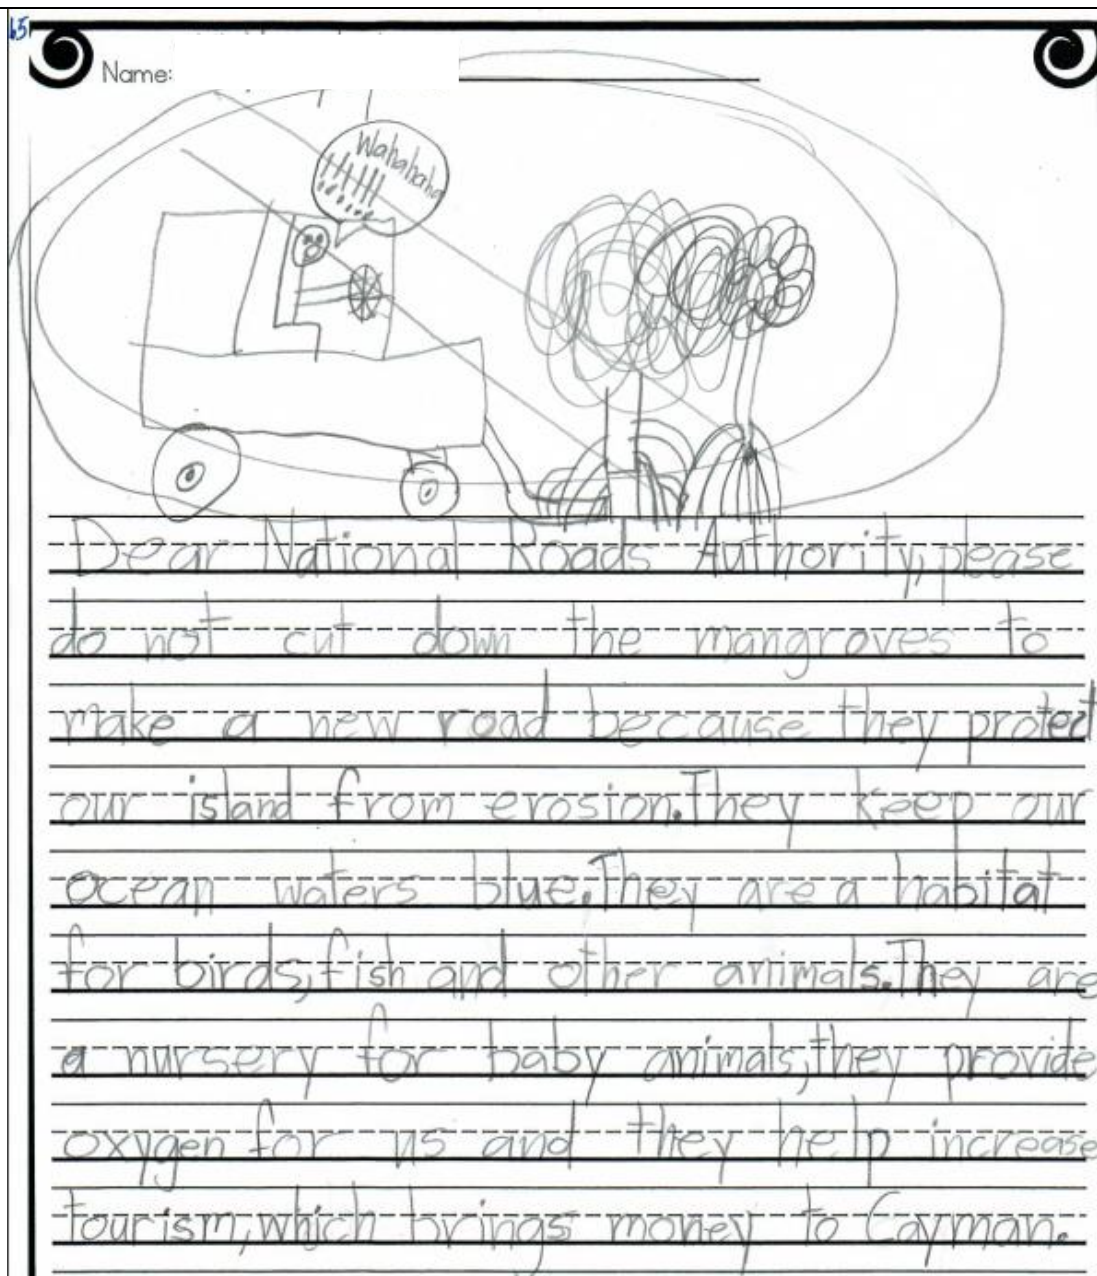 65
Name:
Wahahaha
!!!!!!
Dear National Roads Authority, please
do not cut down the mangroves to
make a new road because they protect
our island from erosion. They keep our
ocean waters blue. They are a habitat
for birds, fish and other animals. They are
a nursery for baby animals, they provide
oxygen for us and they help increase
tourism, which brings money to Cayman.